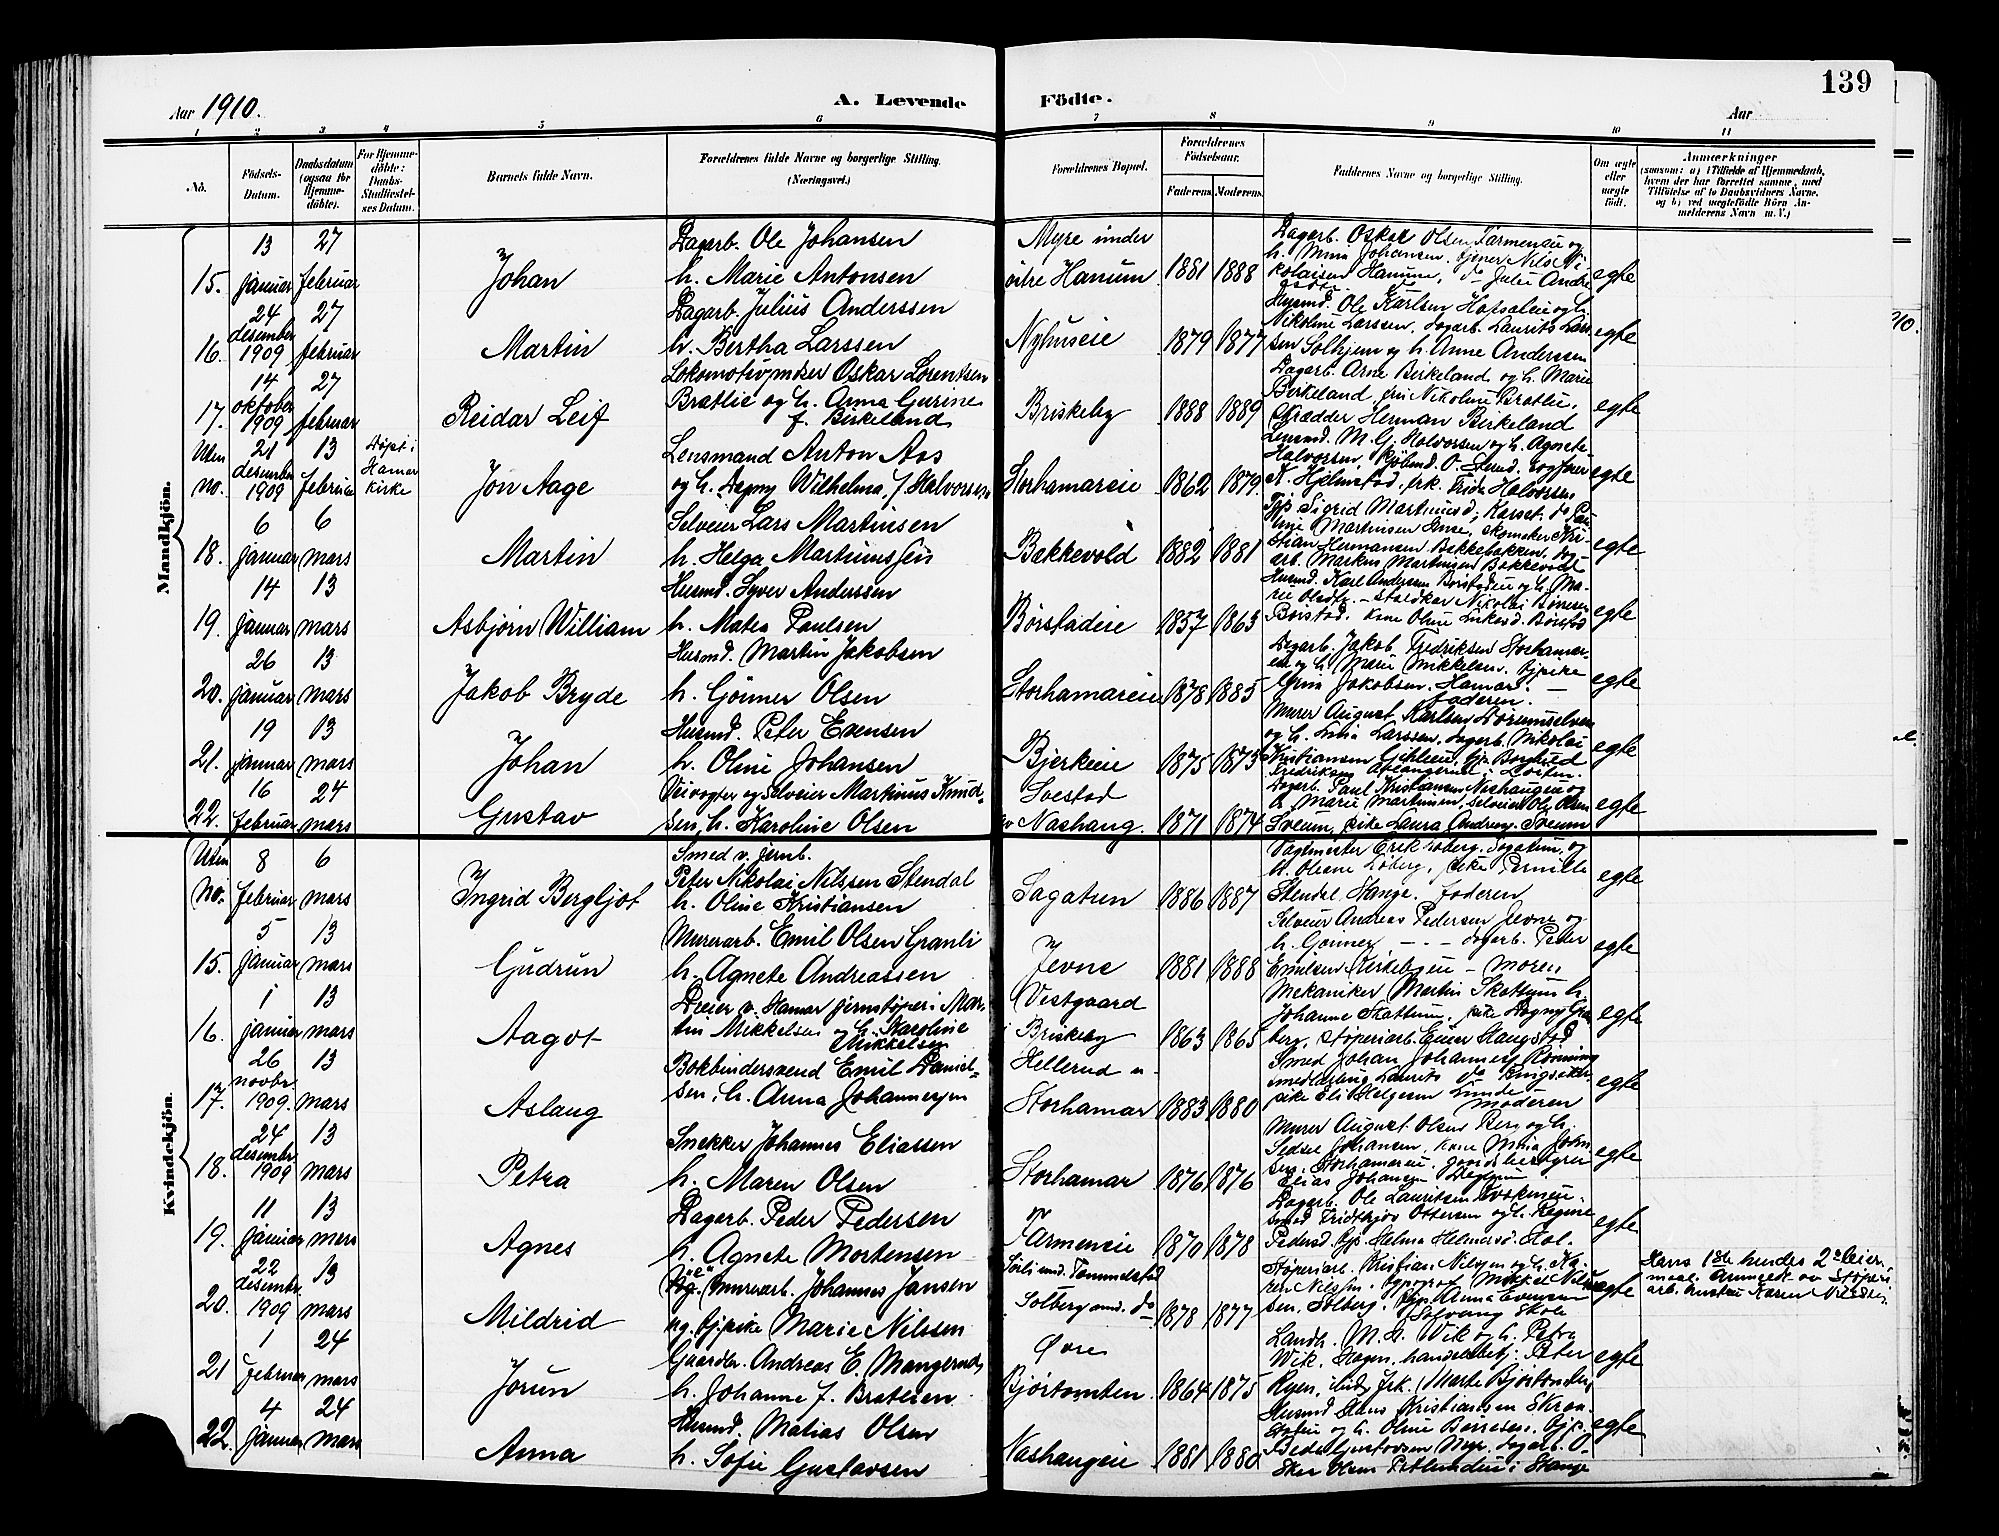 139
Aar 1910.
A. Levende Födte.
Aar
1 2 3 4 5 6 7 8 9 10 11
No.
Födsels-Datum.
Daabsdatum (ogsaa for Hjemme-döbte).
For Hjemme-döbte: Daabs-Stadfæstel-ses Datum.
Barnets fulde Navn.
Forældrenes fulde Navne og borgerlige Stilling. (Næringsvei.)
Forældrenes Bopæl.
Forældrenes Födselsaar.
Faderens. Moderens.
Faddernes Navne og borgerlige Stilling.
Om ægte eller uægte födt.
Anmærkninger
(saasom: a) i Tilfælde af Hjemmedaab,
hvem der har forrettet samme, med
Tilföielse af to Daabsvidners Navne,
og b) ved uægtefödte Börn An-
melderens Navn m. V.)
Mandkjön.
15. 13 januar 27 februar
Johan
Dagarb. Ole Johansen
h. Marie Antonsen
Myre under
øvre Hanum
1881 1888
Dagarb. Oskar Olsen Farmeneie og
h. Mina Johansen, tjener Nils Ni-
kolaisen Hanum, do Julie Andre
egte
16. 24 desember 1909 27 februar
Martin
Dagarb. Julius Anderssen
h. Bertha Larssen
Nyhuseie
1879 1877
Husmd. Ole Karlsen
Nikoline Larssen, dagarb. Laurits Lars
sen Solhjem og h. Anne Anderssen
egte
17. 14 oktober 1909 27 februar
Reidar Leif
Lokomotivpudser Oskar Lorentsen
Bratlie og h. Anna Gurine
f. Birkeland
Briskeby
1888 1889
Dagarb. Arne Birkeland og h. Marie
Birkeland, frk Nikoline Bratlie,
skrædder Herman Birkeland
egte
Uten no. 21 desember 1909 13 februar
Døpt i Hamar kirke
Jon Aage
Lensmand Anton Aas
og h. Dagny Wilhelma f. Halvorsen
Storhamareie
1862 1879
Lensmd. M. G. Halvorsen og h. Agnete
Halvorsen, kjøbmd. O. Sterud, sagfører
A. Hjelmstad, frk. Frida Halvorsen
egte
18. 6 januar 6 mars
Martin
Selveier Lars Martinsen
h. Helga Martinussen
Bækkevold
1882 1881
Martinsen skomaker Kri-
stian Hermansen Bekkebakken, dag
arb. Markus Martinsen Bækkevold
egte
19. 14 januar 13 mars
Asbjørn William
Husmd. Syver Anderssen
h. Matea Paulsen
Børstadeie
1857 1863
Husmd. Karl Andersen Børstadeie og h. Ma-
rie Olsdtr. – staldkar Nikolai
Børstad, kone Oline Børstad
egte
20. 26 januar 13 mars
Jakob Bryde
Husmd. Martin Jakobsen
h. Gönner Olsen
Storhamareie
1878 1885
Dagarb. Jakob Fredriksen Storhamar-
eie og h. Marie Mikkelsen, tjpike
Jakobsen, Hamar. –
faderen.
egte
21. 19 januar 13 mars
Johan
Husmd. Peter Evensen
h. Oline Johansen
Bjerkeeie
1875 1873
Murer August Karlsen
og h. Lina Larssen, dagarb. Nikolai
Kristiansen
i Løiten.
egte
22. 16 februar 24 mars
Gustav
Veivogter og selveier Martinus Knud-
sen, h. Karoline Olsen
Svestad
av Nashang.
1871 1874
Dagarb. Paul Kristiansen Nashaugeie og
h. Marie Martinsen, selveier Ole Olsen
Sveum, pike Laura Sveum
egte
Kvindekjön.
Uten no. 8 februar 6 mars
Ingrid Bergljot
Smed v. jernb.
Peter Nikolai Nilssen Stendal
h. Oline Kristiansen
Sagatun
1886 1887
Vagtmester Erik Løberg, Sagatun, og
h. Oleane Løberg, pike Pernille
Stendal Stange. faderen
egte
15. 5 januar 13 mars
Gudrun
Murerarb. Emil Olsen Granli
h. Agnete Andreassen
Jevne
1881 1888
Selveier Andreas Pedersen Jevne og
h. Gönner – – – dagarb. Peder
Emilsen – moren
egte
16. 1 januar 13 mars
Aagot
Dreier v. Hamar jernstøperi Mar-
tin Mikkelsen og h. Karoline
Mikkelsen
Vestgaard
i Briskeby
1863 1865
Mekaniker Martin Skattum h.
Johanne Skattum, pike Dagny
berg, støperiarb. Einar Haugstad
egte
17. 26 novbr. 1909. 13 mars
Aslaug
Bokbindersvend Emil Daniel-
sen, h. Anna Johannessen
Hellerud u.
Storhamar
1883 1880
Smed Johan Johannesen Rønning
smedlærling Laurits do Ringsaker
pike Eli Helgesen Lunde
moderen
egte
18. 24 desembr. 1909 13 mars
Petra
Snekker Johannes Eliassen
h. Maren Olsen
Storhamar
1876 1876
Murer August Olsen Berg og h.
Sedsel Johansen, kone Mina Johan
sen, Storhamareie, gaardsbestyrer
Elias Johansen
egte
19. 11 januar 13 mars
Agnes
Dagarb. Peder Pedersen
h. Agnete Mortensen
Farmeneie
1870 1878
Dagarb. Ole Lauritsen
smed Fridthjov Ottersen og h. Regine
Pedersd. tjp. Helma
egte
20. 22 desembr. 1909 13 mars
Mildrid
Ug. murerarb. Johannes Jansen
ug. tj.pike Marie Nilssen
Solberg und. do
1878 1877
Støperiarb. Kristian Nilssen og h. Ka-
ren Nilssen, typograf Mikkel Nils-
sen, Solberg, tjp. Anna Evensen
Solvang skole
uegte
Hans 1ste hendes 2det leier-
maal. Anmeldt av støperi
arb. hustru Karen Nilssen
21 1 februar 24 mars
Jorun
Gaardbr. Andreas E. Mangerud
h. Johanne f. Bratlien
Øvre
Bjørtomten
1864 1875
Landh. M. A. Wik og h. Petra
Wik, Hagen, handelsbetj. Peter
Ryen, frk. Marte Bjørtomten
egte
22. 4 januar 24 mars
Anna
Husmd. Matias Olsen
h. Sofie Gustavsen
Nashaugeie
1881 1880
Husmd Hans Kristiansen
og h. Oline
Gustavsen dagarb. O-
skar Olsen i Stange
egte